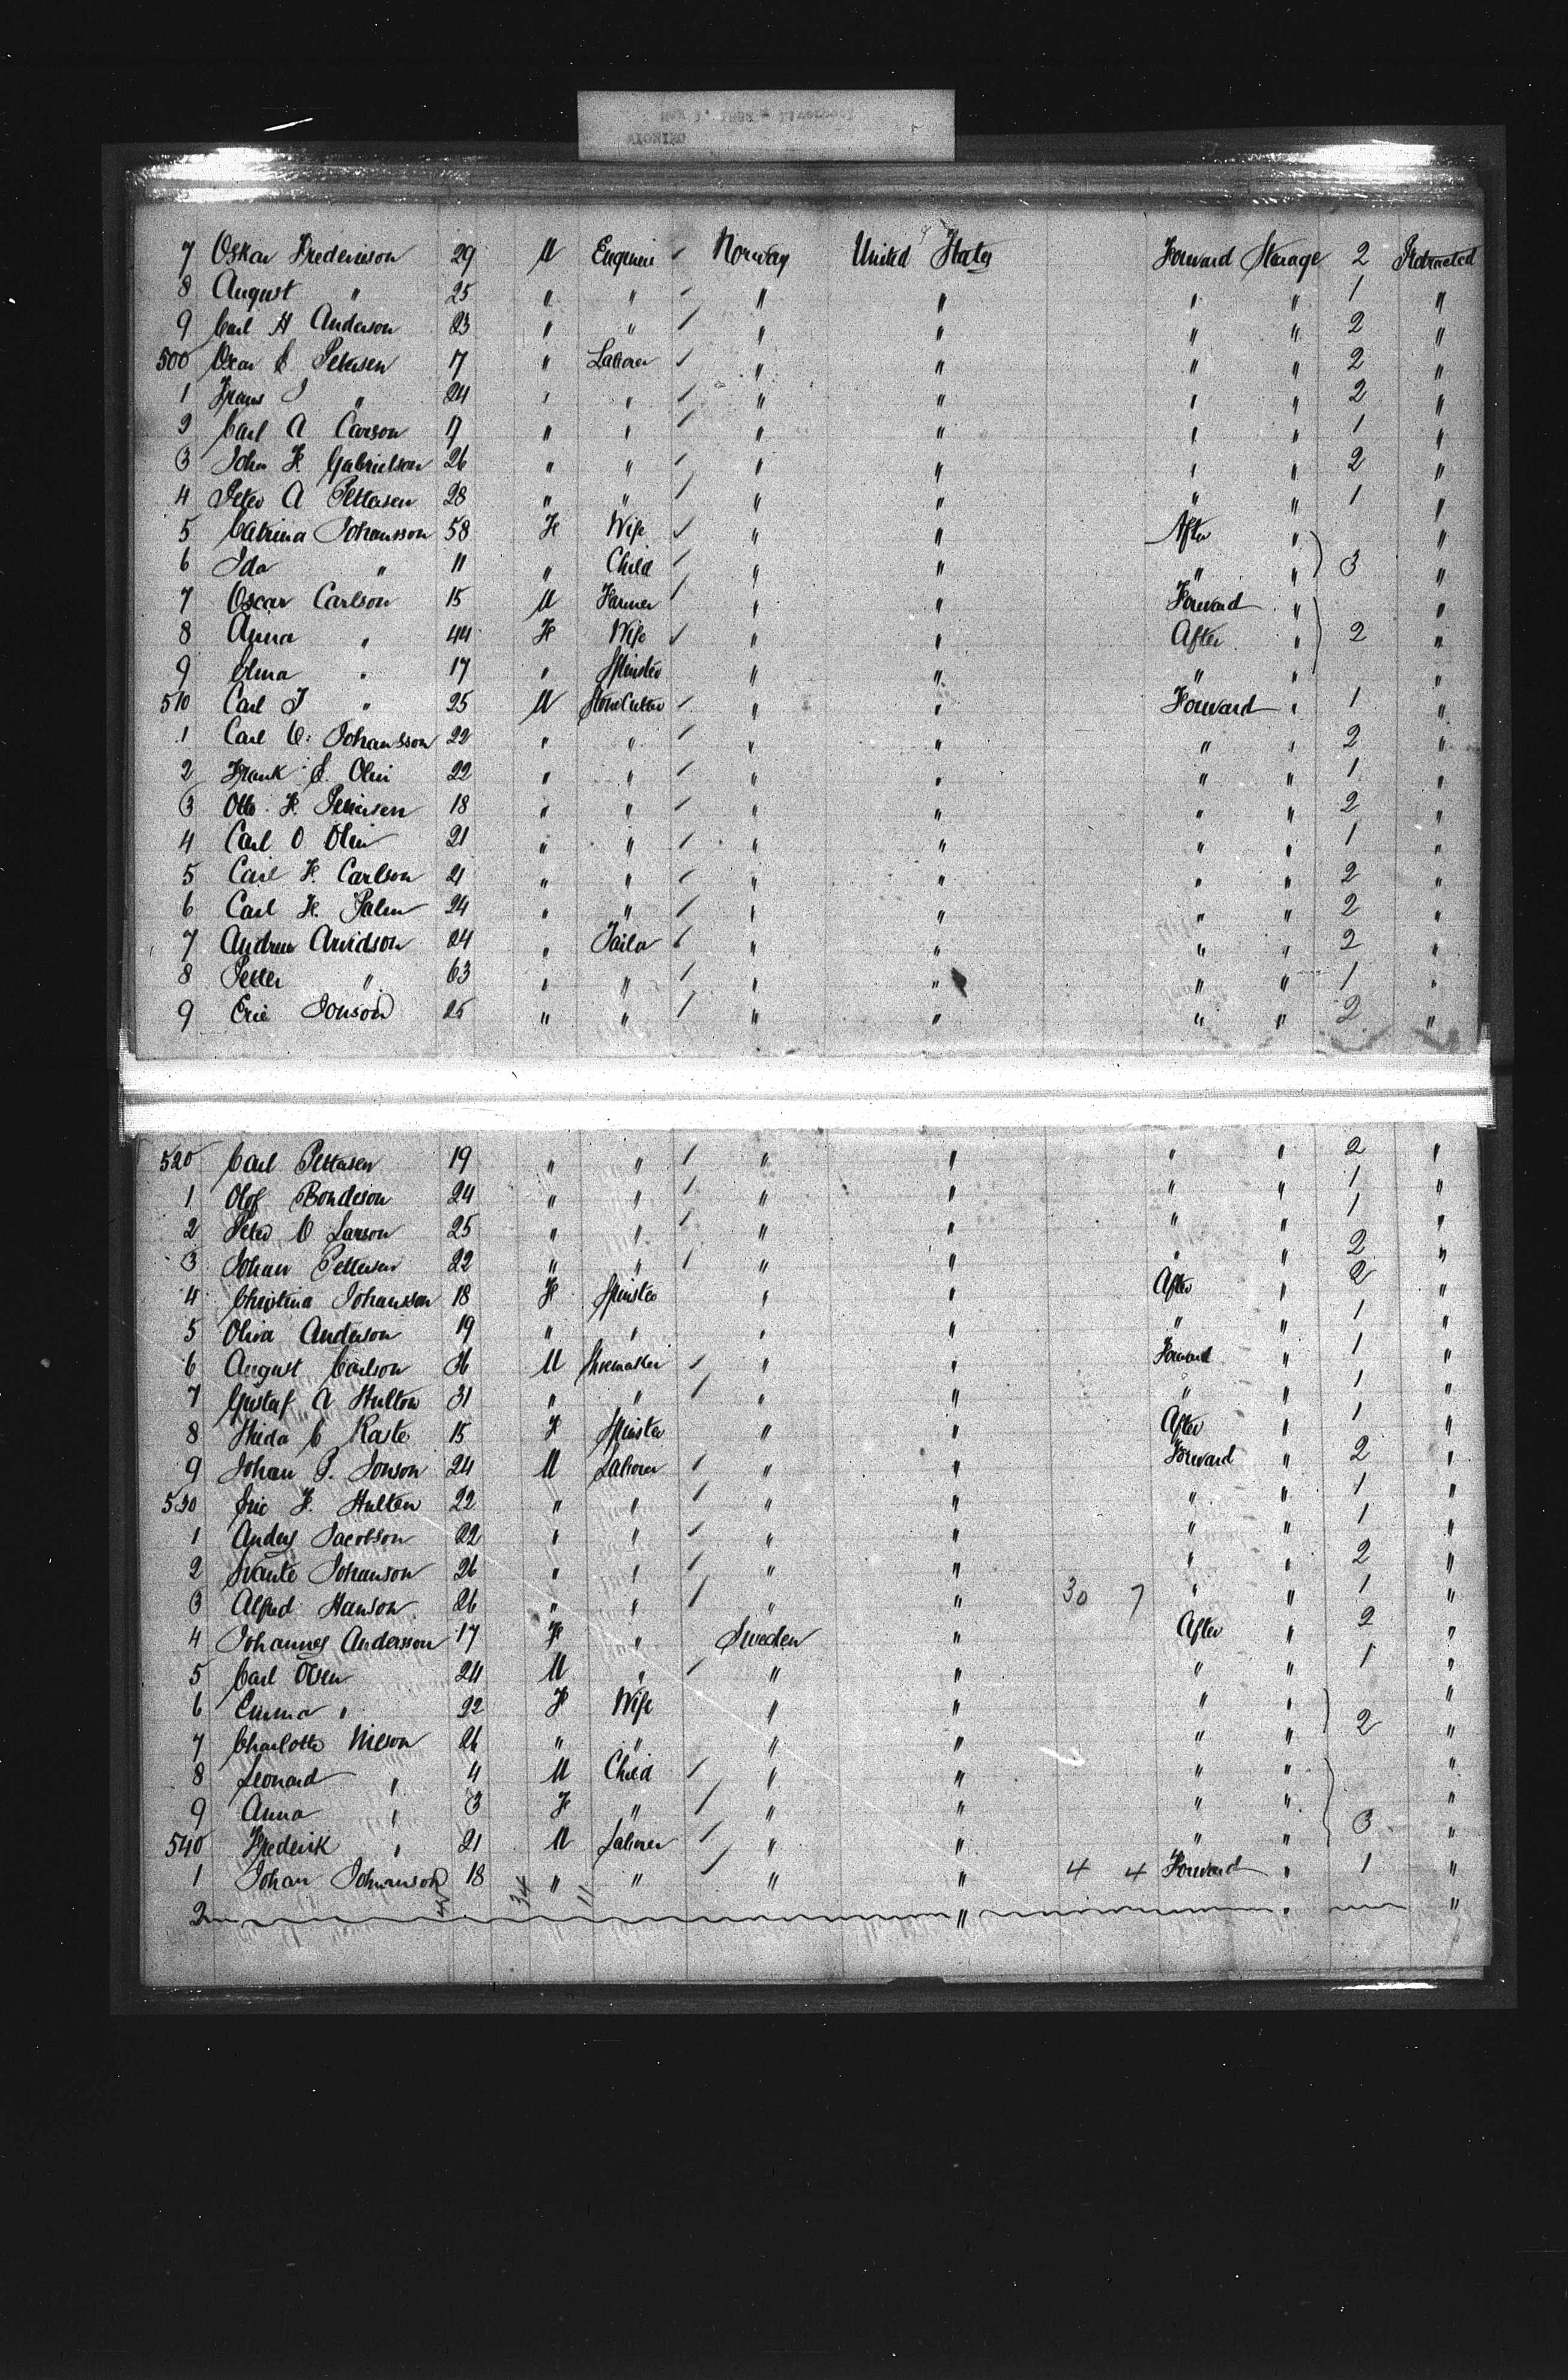 7 Oskar Frederickson 29 M Engineer ✓ Norway United States Forward Steerage 2 Protracted
8 August " 25 " " ✓ " " " " 1 "
9 Carl H Anderson 23 " " ✓ " " " " 2 "
500 Oscar E Petersen 17 " Laborer ✓ " " " " 2 "
1 Frans J " 24 " " ✓ " " " " 2 "
2 Carl A Carson 17 " " ✓ " " " " 1 "
3 John F. Gabrielson 26 " " ✓ " " " " 2 "
4 Peter A Pettersen 28 " " ✓ " " " " 1 "
5 Catrina Johansson 58 F Wife ✓ " " After " "
6 Ida " 11 " Child ✓ " " " " 3 "
7 Oscar Carlson 15 M Farmer ✓ " " Forward " "
8 Anna " 44 F Wife ✓ " " After " 2 "
9 Alma " 17 " Spinster " " " " "
510 Carl J " 25 M Stone Cutter ✓ " " Forward " 1 "
1 Carl O. Johansson 22 " " ✓ " " " " 2 "
2 Frank E. Olin 22 " " ✓ " " " " 1 "
3 Otto F. Petersen 18 " " ✓ " " " " 2 "
4 Carl O Olin 21 " " ✓ " " " " 1 "
5 Carl F. Carlson 21 " " ✓ " " " " 2 "
6 Carl F. Palm 24 " " ✓ " " " " 2 "
7 Andrew Arvidson 24 " Tailor ✓ " " " " 2 "
8 Petter " 63 " " ✓ " " " " 1 "
9 Eric Jonson 25 " " ✓ " " " " 2 "
520 Carl Pettersen 19 " " ✓ " " " " 2 "
1 Olof Bondeson 24 " " ✓ " " " " 1 "
2 Peter O Larson 25 " " ✓ " " " " 1 "
3 Johan Pettersen 22 " " ✓ " " " " 2 "
4 Christina Johansson 18 F Spinster " " After " 2 "
5 Oliva Anderson 19 " " " " " " 1 "
6 August Carlson 36 M Shoemaker ✓ " " Forward " 1 "
7 Gustaf A Hulton 31 " " ✓ " " " " 1 "
8 C Kaste 15 F Spinster " " After " 1 "
9 Johan P. Jonson 24 M Laborer ✓ " " Forward " 2 "
530 Eric F. Hulten 22 " " ✓ " " " " 1 "
1 Anders Jacobson 22 " " ✓ " " " " 1 "
2 Svante Johanson 26 " " ✓ " " " " 2 "
3 Alfred Hanson 26 " " ✓ " " 30 7 " " 1 "
4 Johannes Andersson 17 F " Sweden " After " 2 "
5 Carl Olsen 24 M " ✓ " " " " 1 "
6 Emma " 22 F Wife " " " " "
7 Charlotte Nilson 26 " " " " " " 2 "
8 Leonard " 4 M Child ✓ " " " " "
9 Anna " 3 F " ✓ " " " " "
540 Frederik " 21 M Laborer ✓ " " " " 3 "
1 Johan Johanson 18 " " ✓ " " 4 4 Forward " 1 "
34 11
2 " " "